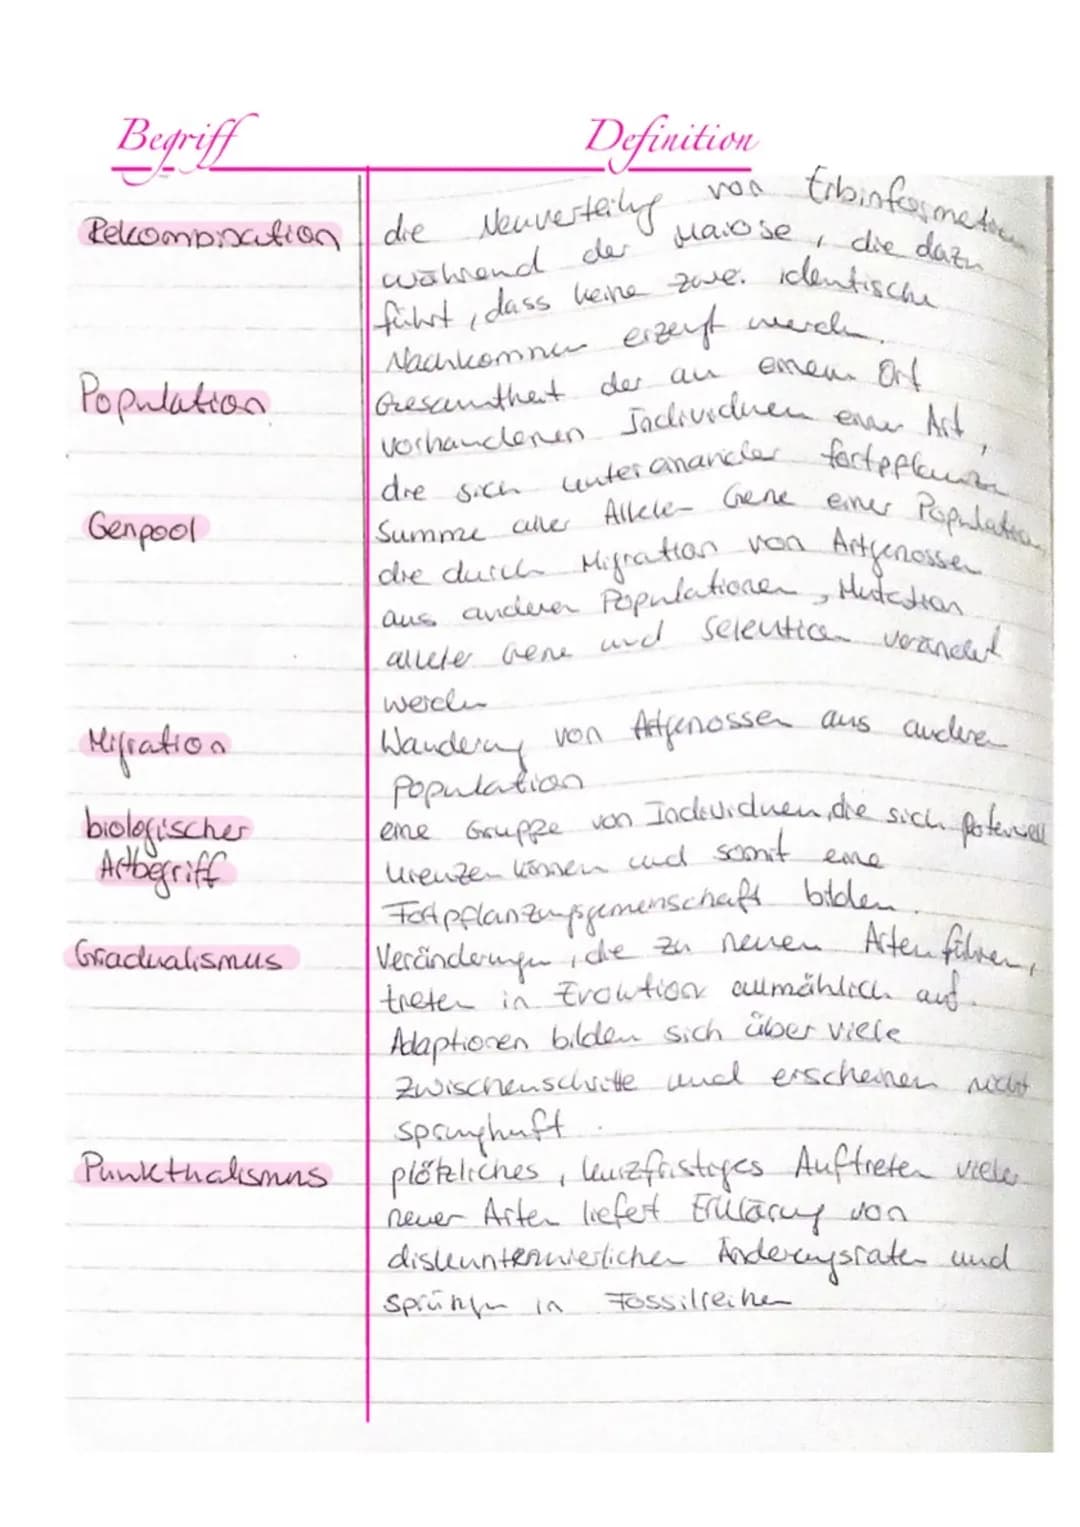 Begriff Definition
Rekombination die Neuverteilung von Erbinformation
während der Maiose, die dazu
führt, dass keine zwei identische
Nachkommen erzeugt werden.
Population Gesamtheit der an einem Ort
vorhandenen Individuen einer Art,
die sich untereinander fortpflanzen
Genpool Summe aller Allele Gene einer Population,
die durch Migration von Artgenossen
aus anderen Populationen, Mutation
allele Gene und Selektion verändert
werden
Migration Wanderung von Artgenossen aus anderen
Population
biologischer eine Gruppe von Individuen, die sich potenziell
Artbegriff kreuzen können und somit eine
Fortpflanzungsgemeinschaft bilden.
Gradualismus Veränderungen, die zu neuen Arten führen,
treten in Evolution allmählich auf.
Adaptionen bilden sich über viele
Zwischenschritte und erscheinen nicht
sprunghaft.
Punkthalismus plötzliches, kurzfristiges Auftreten vieler
neuer Arten liefert Erklärung von
diskuntenuierlichen Änderungsraten und
Sprüngen in Fossilreihen